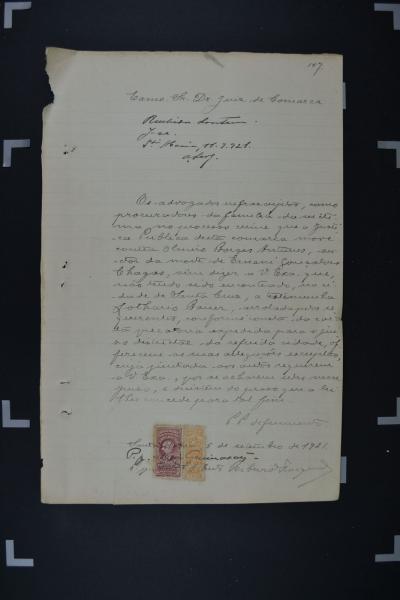 147
Exmo. Sr. Dr. Juiz de Comarca
J-se.
Sta Maria, 11.9.921.
Os advogados infrascriptos, como
procuradores da familia da victi
ma no processo crime que a Justi
ça Publica desta comarca move
contra Olmiro Borges Antunes, au
ctor da morte de Ernani Gonçalves
Chagas, vêm dizer a V. Exa. que,
não tendo sido encontrado, na ci
dade de Santa Cruz, a testemunha
Lothario Bauer, arrolada pelos re
querentes, conforme consta da car
ta precatoria expedida para o juizo
districtal da referida cidade, of
ferecem as suas allegações escriptas,
cuja juntada aos autos requerem
a V. Exa., por se acharem
o praso, que a lei
lhes concede para tal fim.
P. P. deferimento
de setembro de 1921.